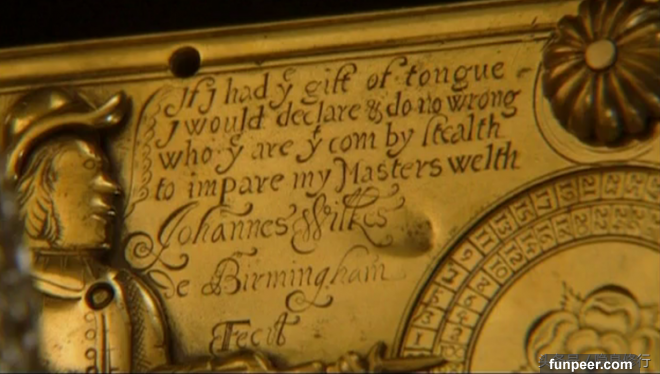 If I had yᵉ gift of tongue
I would declare & do no wrong
who yᵉ are yᵗ com by stealth
to impare my Masters welth
Johannes Wilkes
de Birmingham
Fecit
funpeer.com